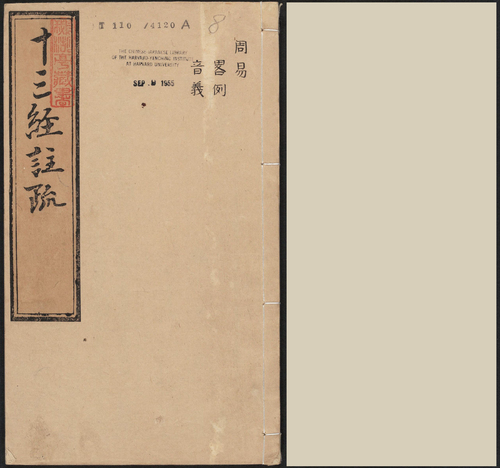 T 110 /4120 A
8
THE CHINESE-JAPANESE LIBRARY
OF THE HARVARD-YENCHING INSTITUTE
AT HARVARD UNIVERSITY
SEP 1955
周易
畧例
音義
十三經註疏